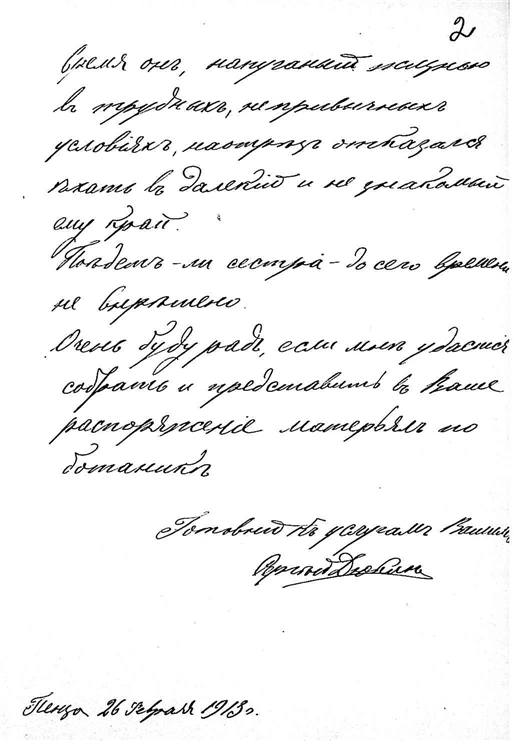 2
время онъ, напуганый жизнью
въ трудныхъ, непривычныхъ
условіяхъ, наотрѣзъ отказался
ѣхать въ далекій и не знакомый
ему край.
Поѣдетъ-ли сестра - до сего времени
не вырѣшено.
Очень буду радъ, если мнѣ удастся
собрать и представить въ Ваше
распоряженіе матерьялъ по
ботаникѣ
Готовый къ услугамъ Вашимъ
Пенза 26 Февраля 1913 г.